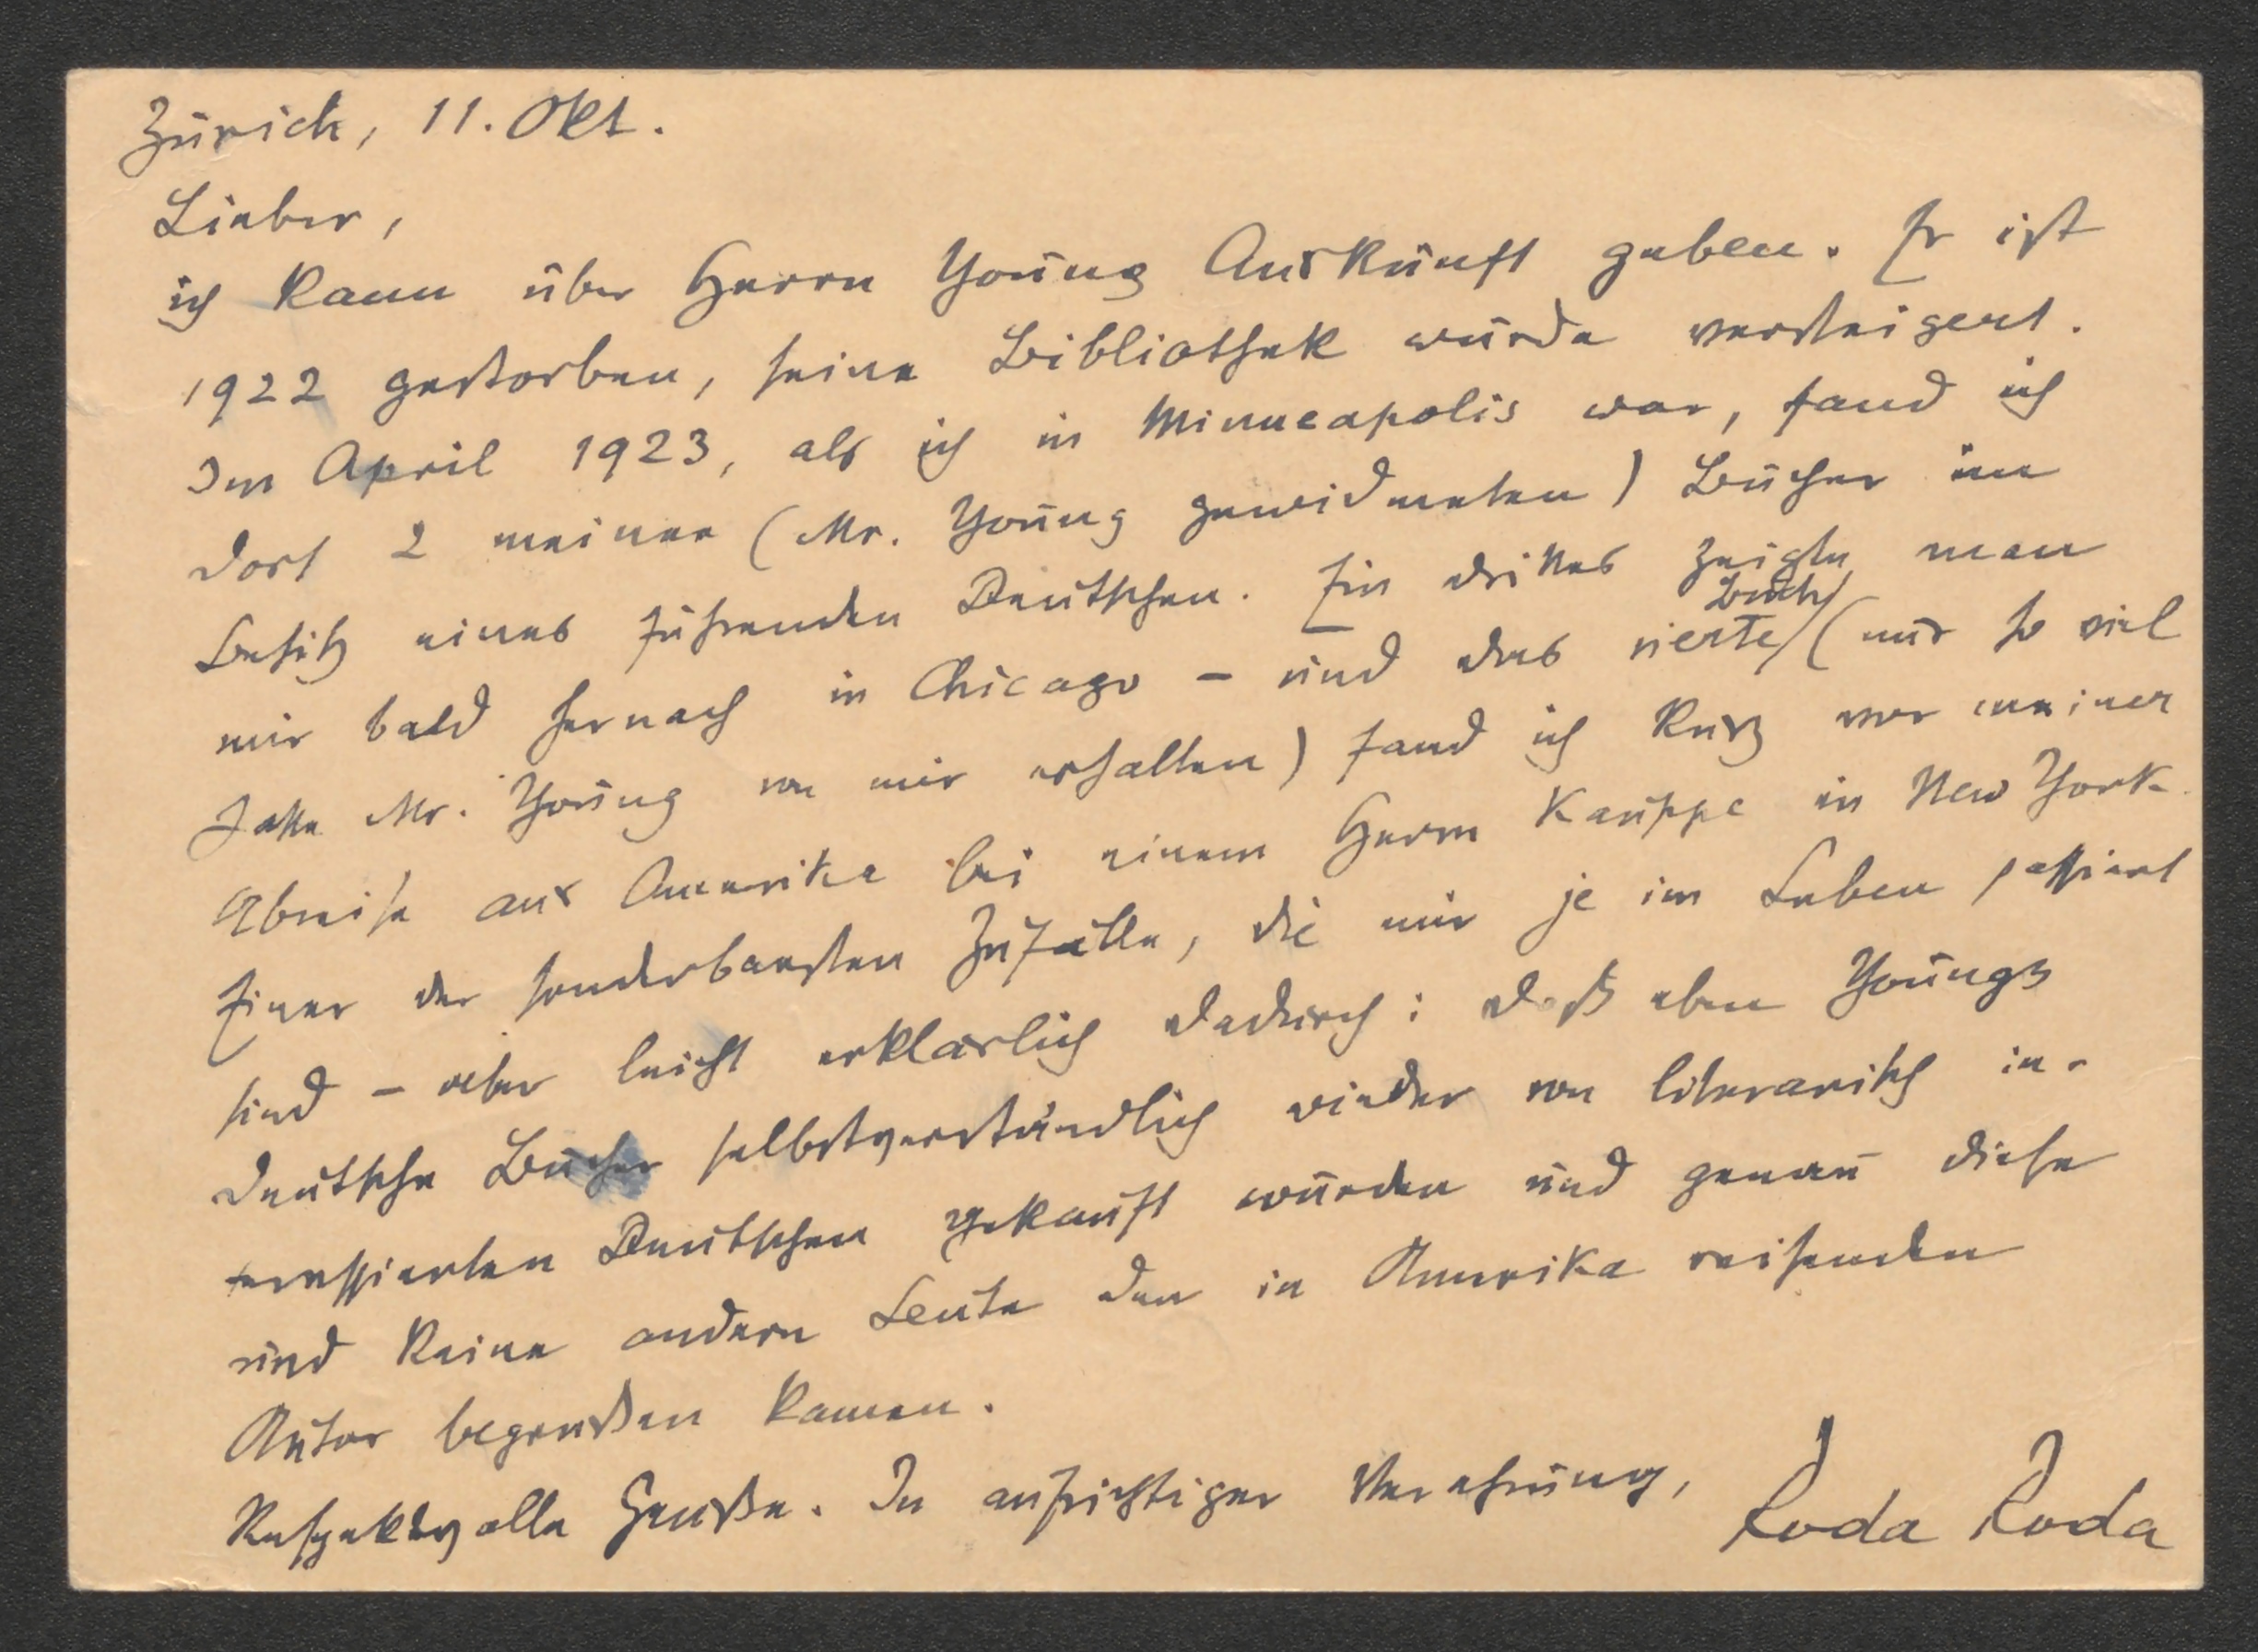 Zürich, 11. Okt.
Lieber,
ich kann über Herrn Young Auskunft geben. Er ist
1922 gestorben, seine Bibliothek wurde versteigert.
Im April 1923, als ich in Minneapolis war, fand ich
dort 2 meiner (Mr. Young gewidmeten) Bücher im
Besitz eines führenden Deutschen. Ein drittes zeigte man
mir bald hernach in Chicago – und das vierte Buch (nur so viel
hatte Mr. Young von mir erhalten) fand ich kurz vor meiner
Abreise aus Amerika bei einem Herrn Kauppe in New York.
Einer der sonderbarsten Zufälle, die mir je im Leben passiert
sind – aber leicht erklärlich dadurch: daß eben Youngs
deutsche Bücher selbstverständlich wieder von literarisch in-
teressierten Deutschen gekauft wurden und genau diese
und keine andern Leute den in Amerika reisenden
Autor begrüßen kamen.
Respektvolle Grüße. In aufrichtiger Verehrung,
Roda Roda